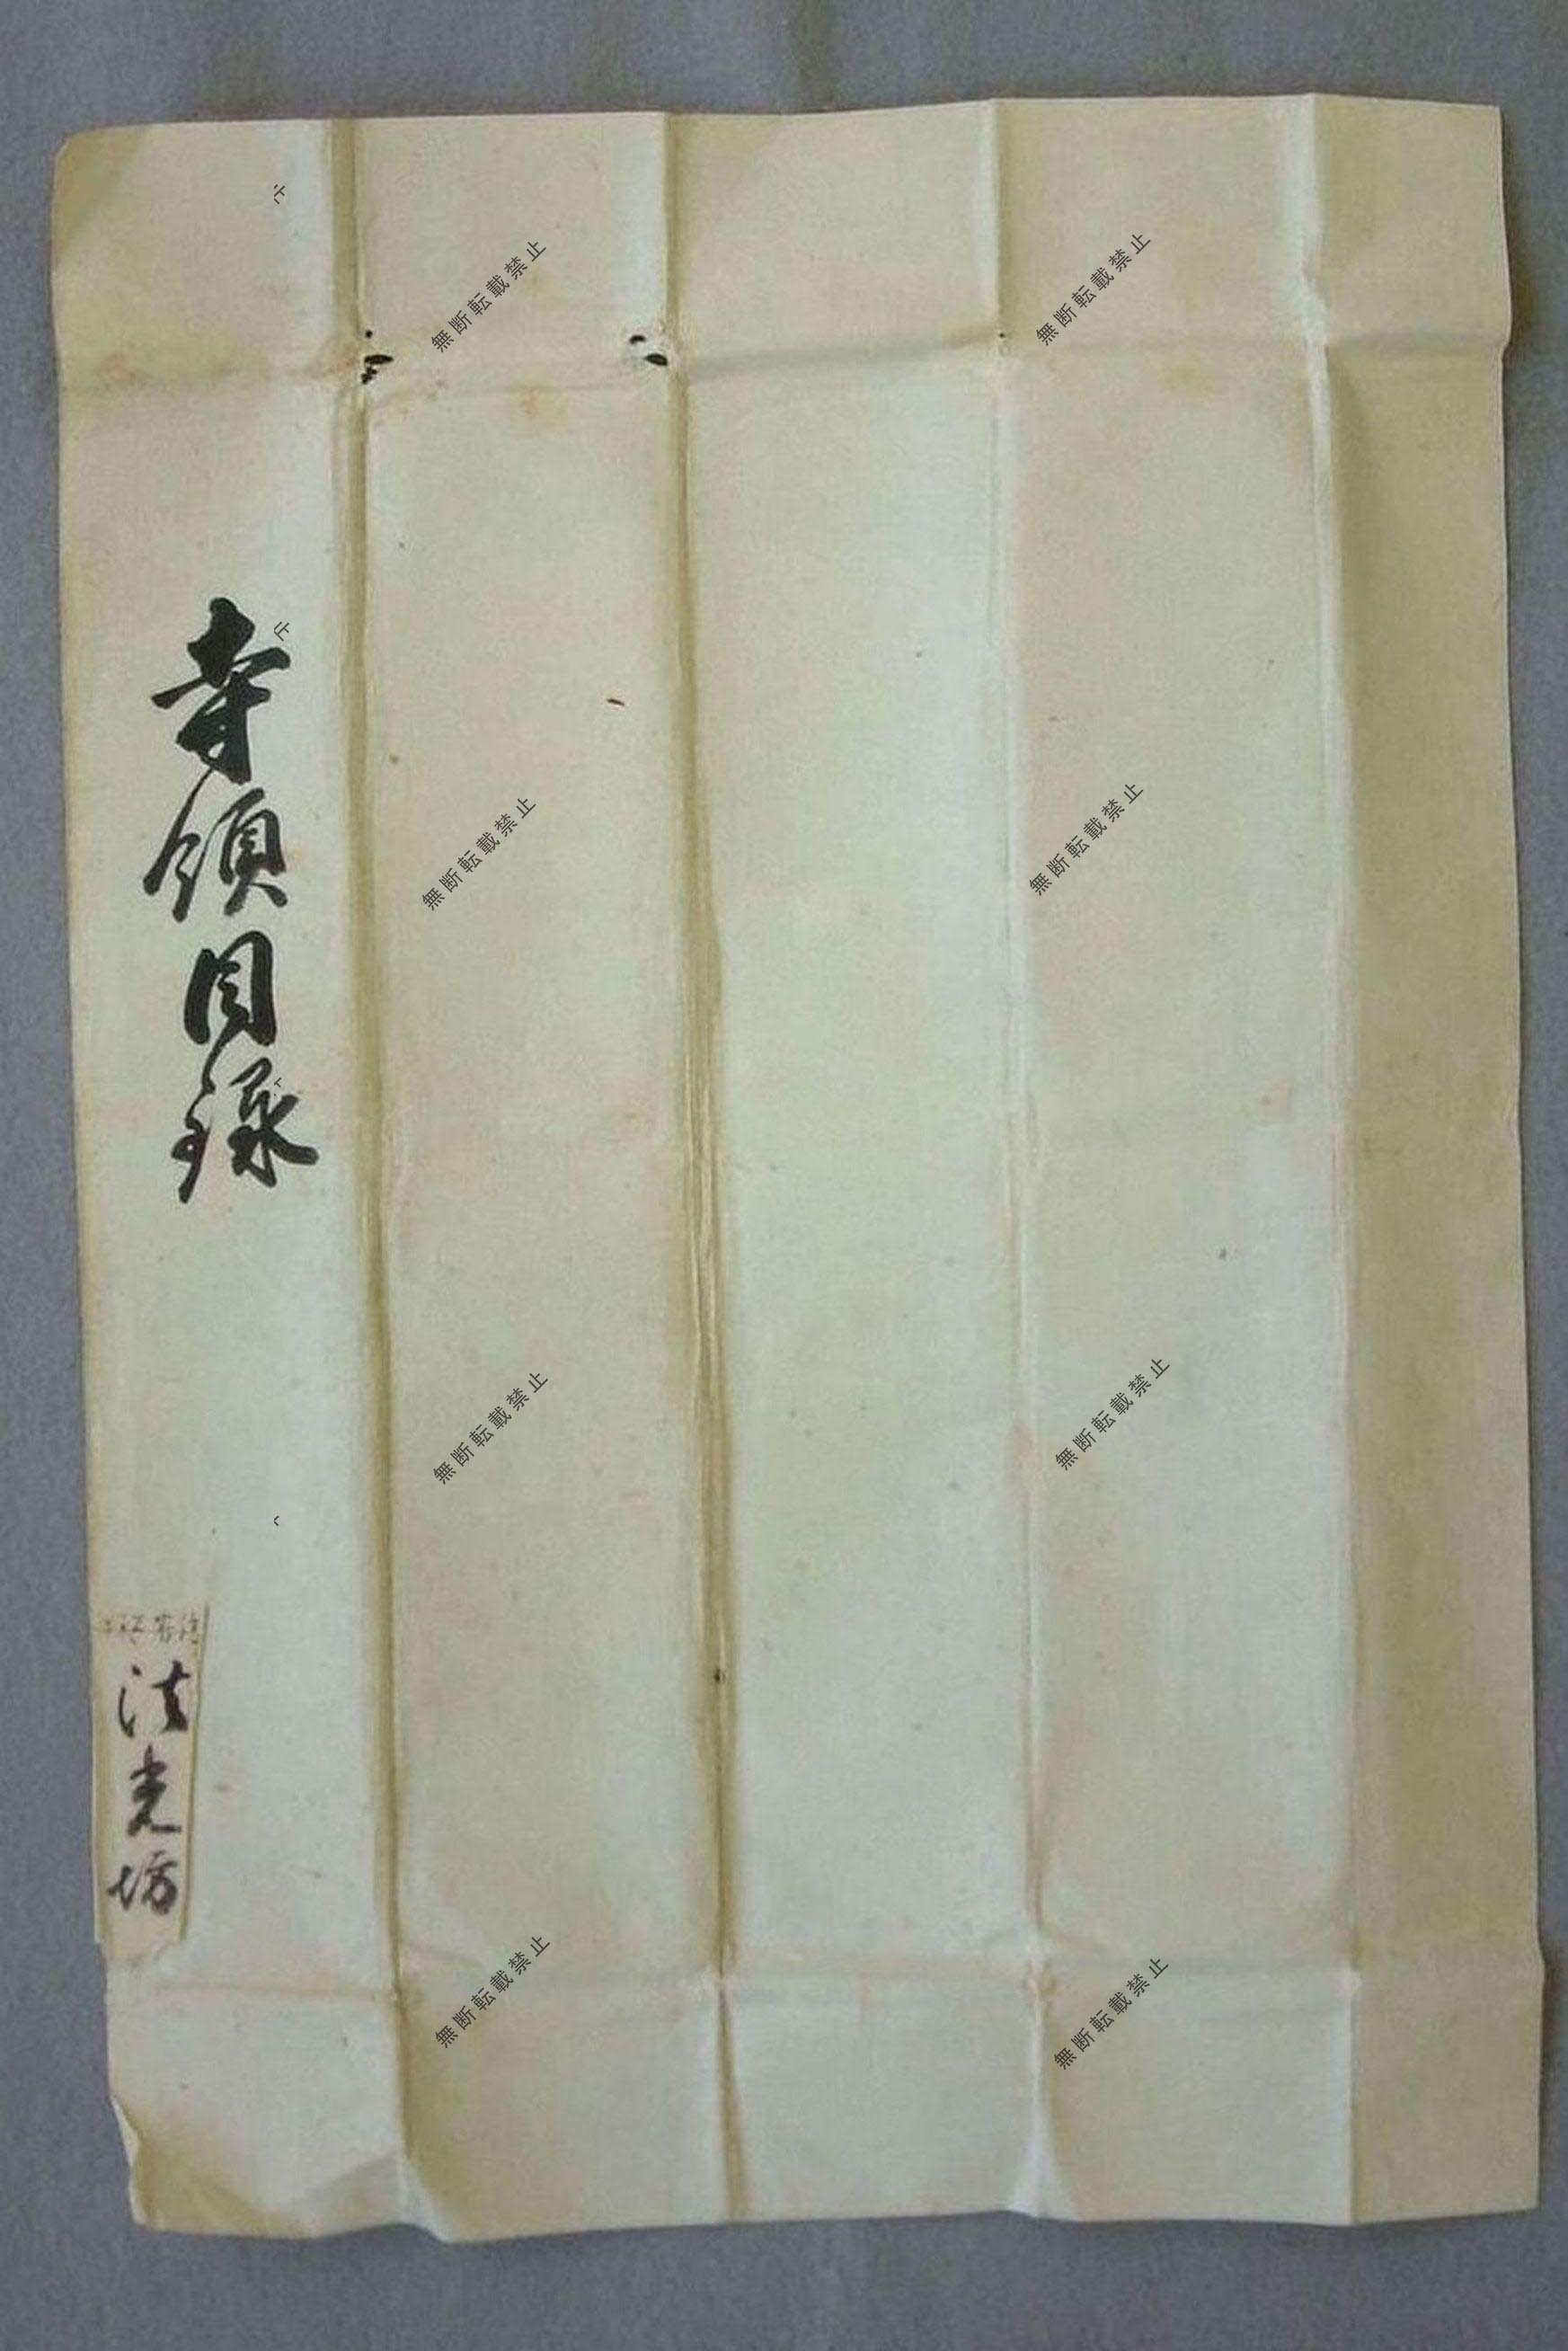 寺領目録
法光坊
無断転載禁止
無断転載禁止
無断転載禁止
無断転載禁止
無断転載禁止
無断転載禁止
無断転載禁止
無断転載禁止